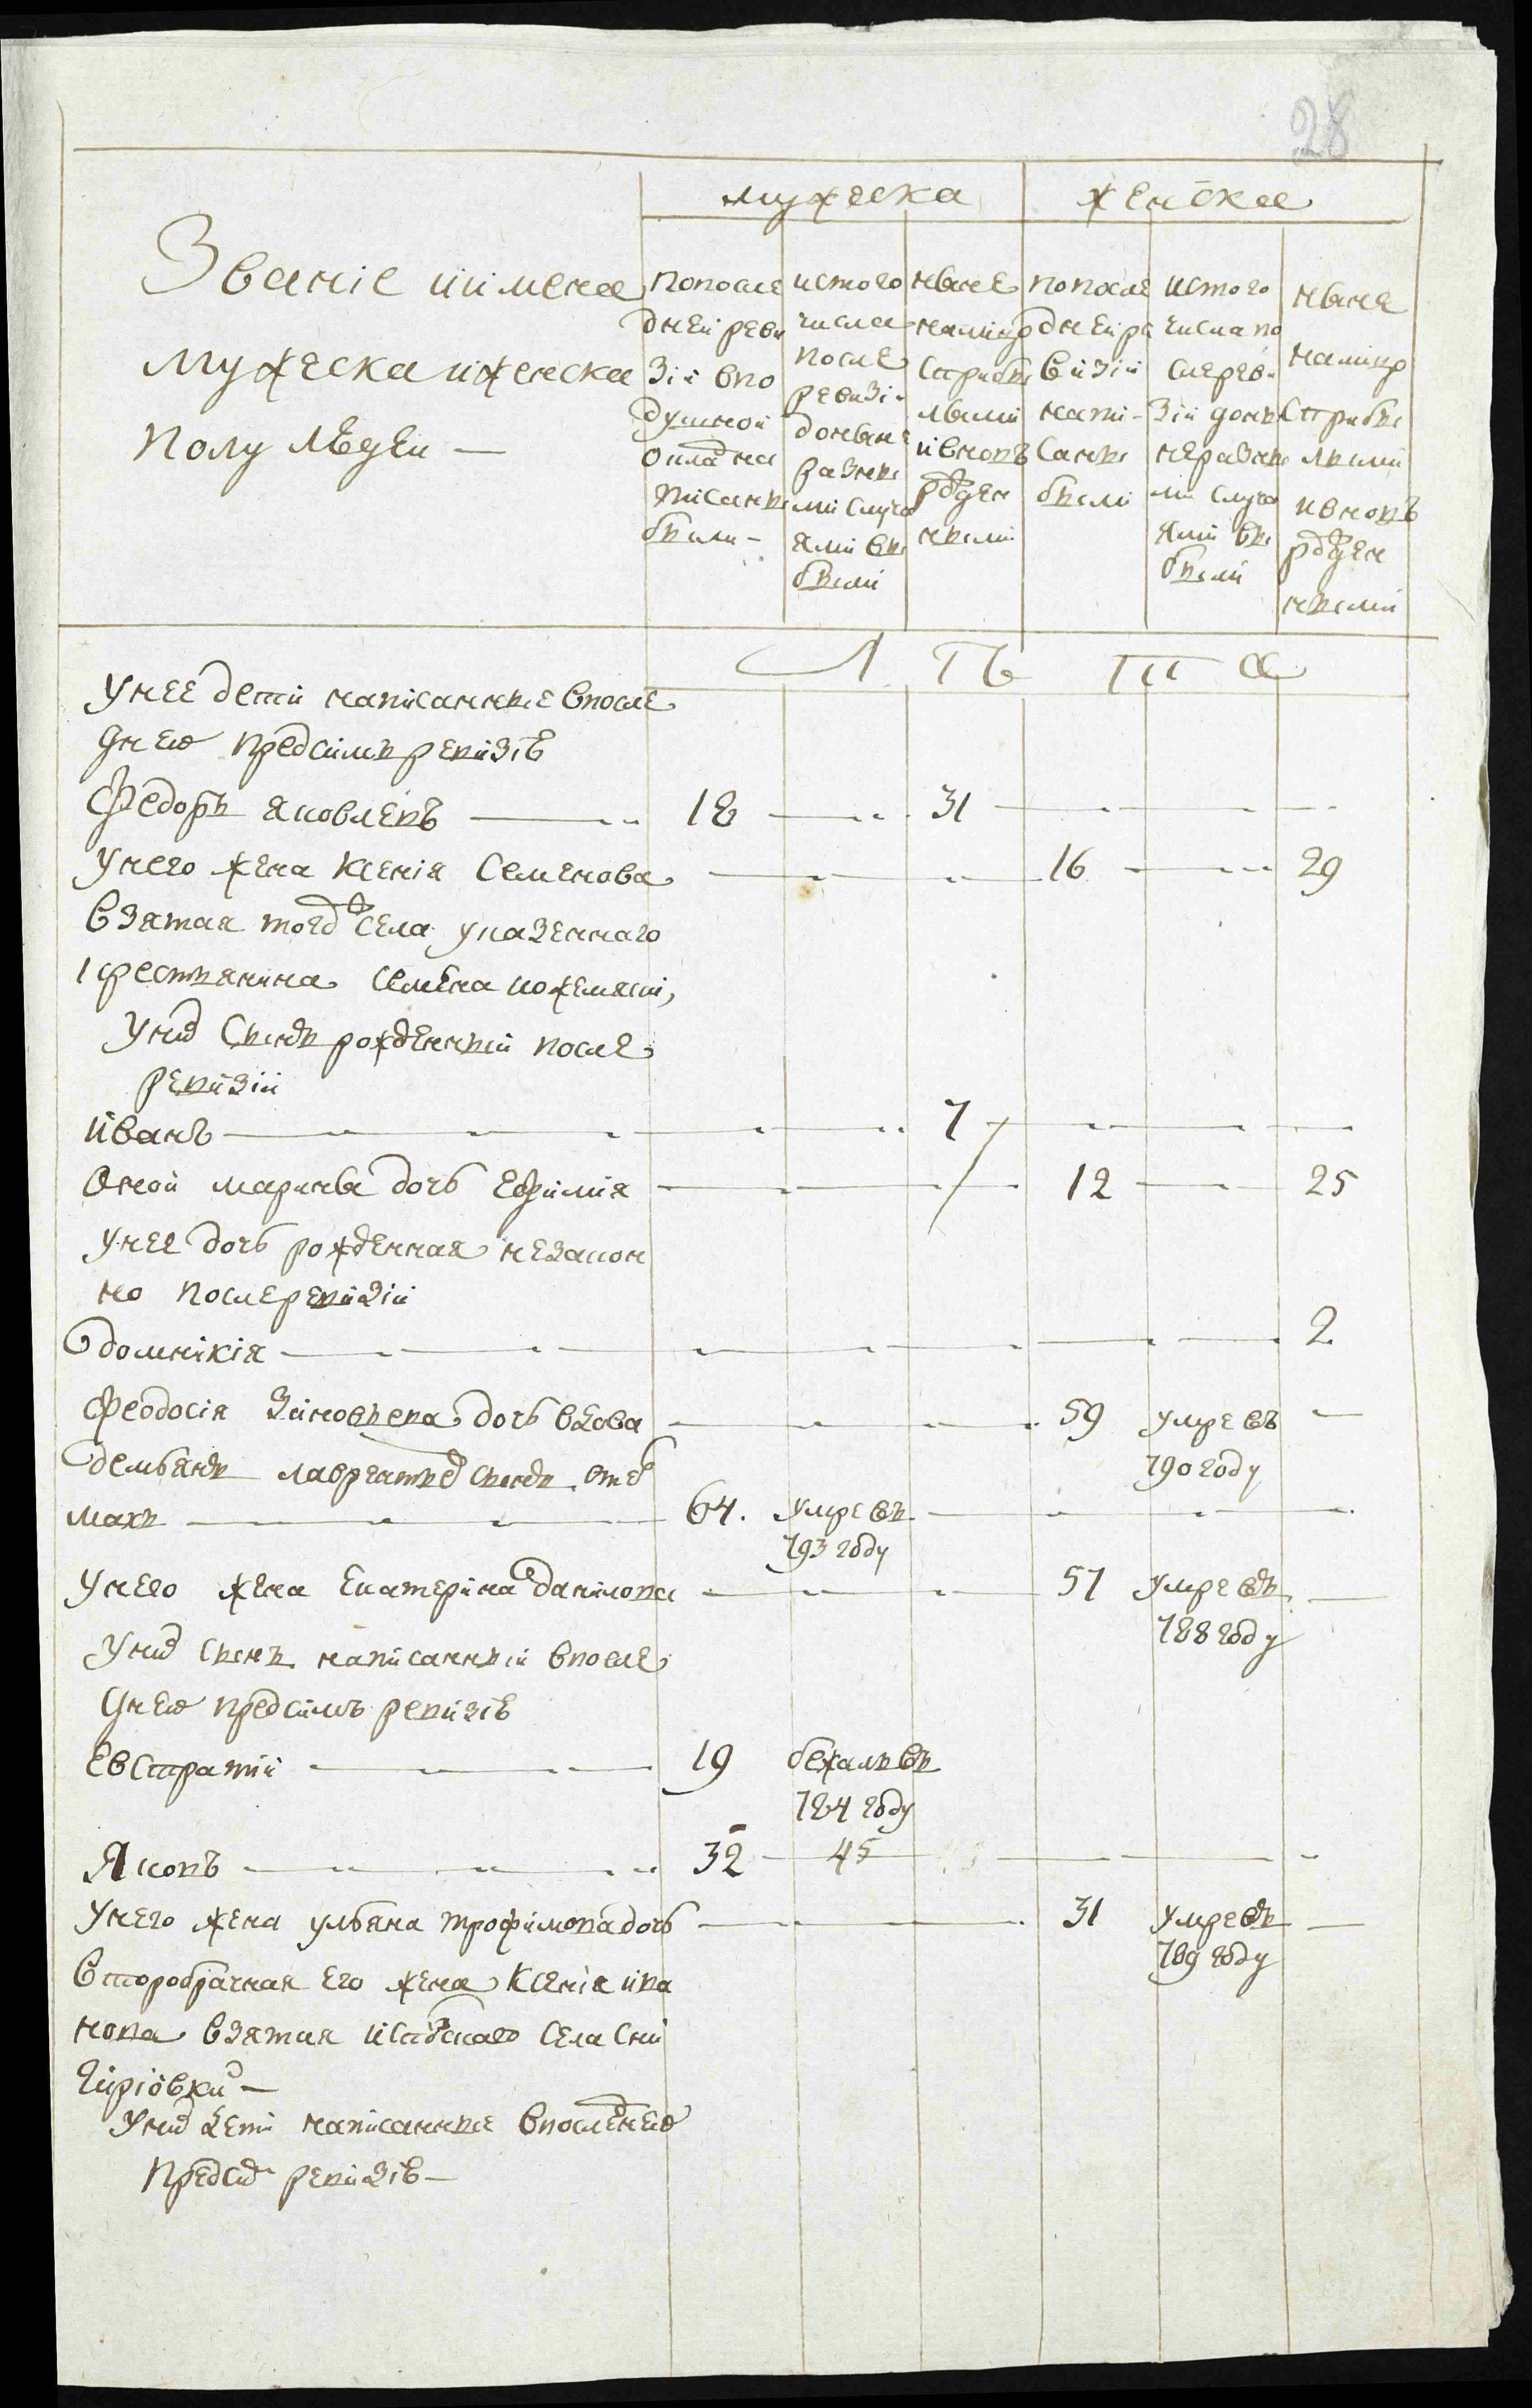 28
мужеска женска
Званіе иимена
мужеска иженска
полу людеи —
попосле
днеи реви
зіи впо
душнои
окладна
писаны
были —
истого
числа
после
ревизіи
доныне
разны
ми случа
ями вы
были
ныне
налицо
старобы
лыми
ивновъ
рожден
ными
попосле
днеи ре
визіи
напи-
саны
были
истого
числа по
слереви
зіи доны
неразны
ми случа
ями вы
были
ныне
налицо
старобы
лыми
ивновъ
рожден
ными
Л ѣ т а
Унее дети написанные впосле
днею предсимъ ревизіею
Федоръ яковлевъ — 18 — 31 —
Унего жена ксенія семенова — 16 — 29
взятая тогож села указеннаго
крестьянина семена кожемяки,
Уних сынъ рожденный после
ревизіи
иванъ — 7 —
Оной марины дочь ефимия — 12 — 25
унее дочь рожденная незакон
но послеревизіи
домникія — 2
Феодосія зиновьева дочь вдова — 59 умре въ —
790 году
демьянъ лаврентьев сынъ
махъ — 64. умре въ —
793 году
Унего жена екатерина данилова — 57 умре въ —
788 году
Уних сынъ написанный впосле
днею предсимъ ревизіею
евстратий — 19 бежалъ въ
784 году
Яковъ — 32 — 45 —
Унего жена ульяна трофимова дочь — 31 умре въ —
789 году
второбрачная его жена ксенія ива
нова взятая села сни
гиріовки —
Уних дети написанные впоследнею
предсим ревизіею —